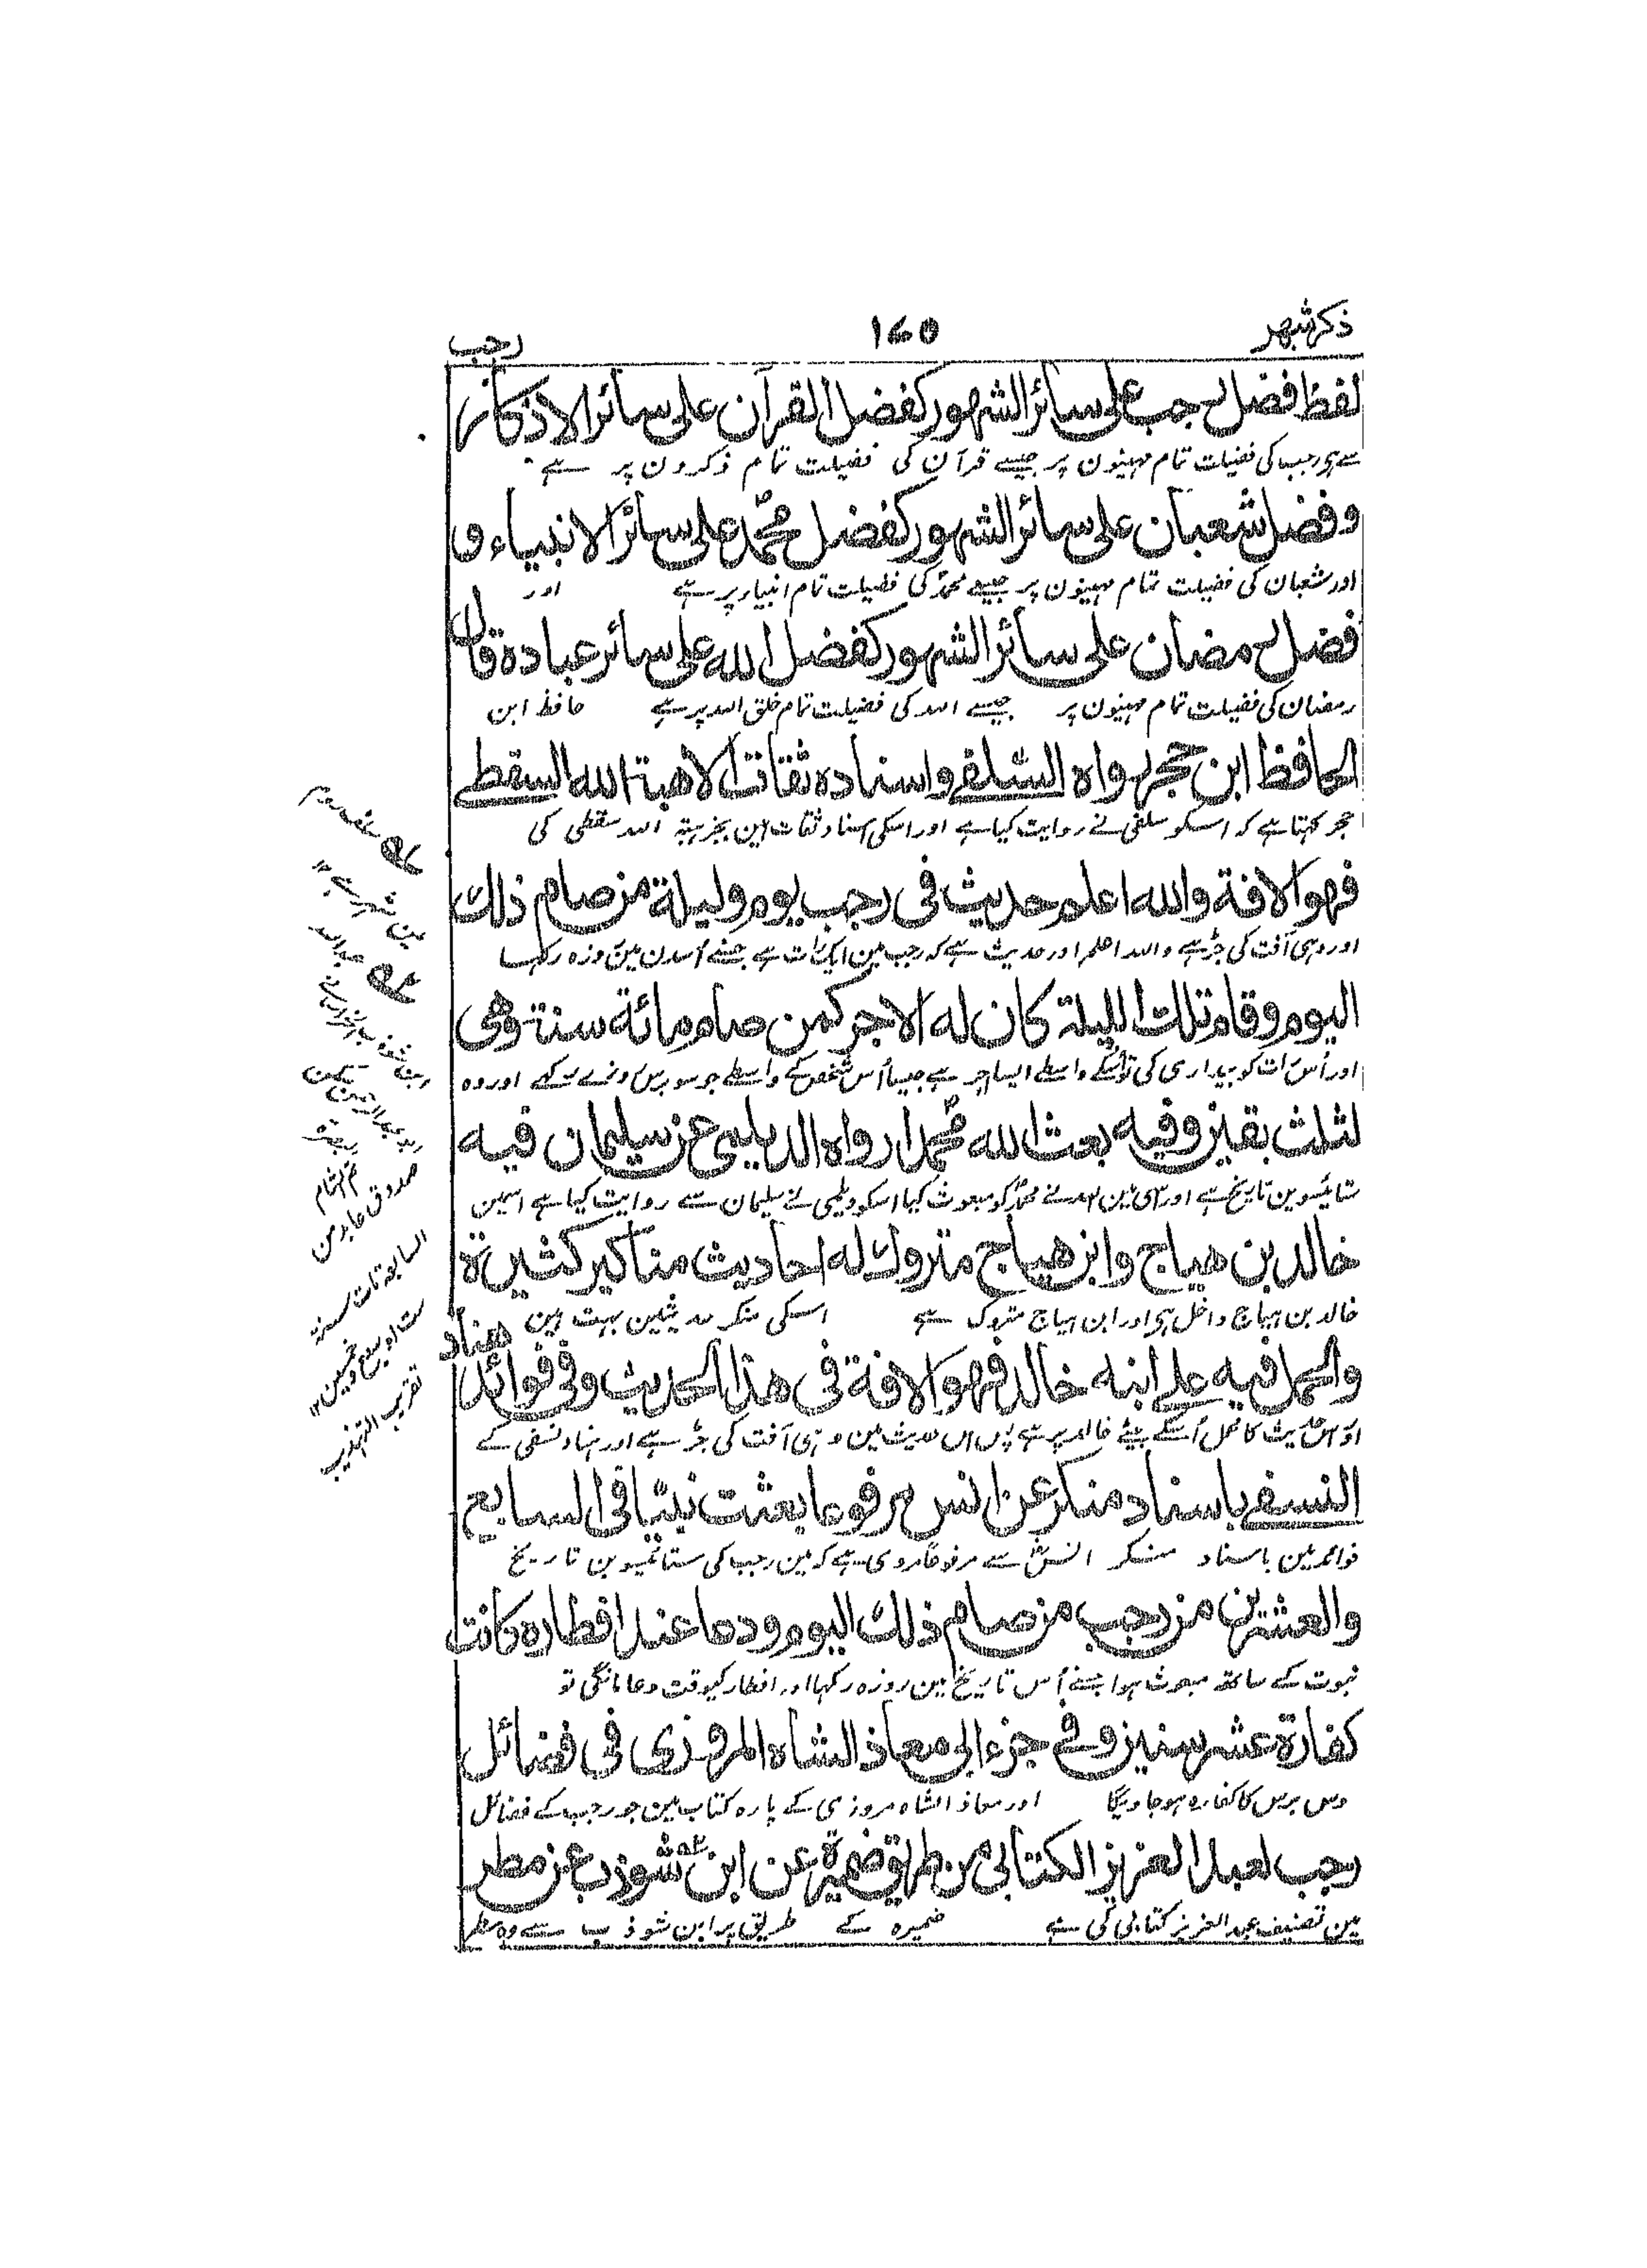 ذکر شہر
۱۷۵
رجب
لفظ فضل رجب علی سائر الشهور کفضل القرآن علی سائر الاذکار
سے ہی رجب کی فضیلت تمام مہینون پر جیسے قرآن کی فضیلت تمام ذکرون پر ہے
وفضل شعبان علی سائر الشهور کفضل محمد علی سائر الانبیاء و
اور شعبان کی فضیلت تمام مہینون پر جیسے محمد کی فضیلت تمام انبیاء پر ہے اور
فضل رمضان علی سائر الشهور کفضل الله علی سائر عباده قال
رمضان کی فضیلت تمام مہینون پر جیسے اللہ کی فضیلت تمام خلق اللہ پر ہے حافظ ابن
الحافظ ابن حجر رواه السلفی واسناده ثقات الا هبة الله السقطی
حجر کہتا ہے کہ اسکو سلفی نے روایت کیا ہے اور اسکی اسناد ثقات ہین بجز ہبۃ اللہ سقطی کی
فهو الافة والله اعلم حدیث فی رجب یوم ولیلة من صام ذلك
اور وہی آفت کی جڑ ہے واللہ اعلم اور حدیث ہے کہ رجب مین ایک رات ہے جسنے اسدن مین روزہ رکہا
الیوم وقام تلك اللیلة کان له الاجر کمن صام مائة سنة وهی
اور اُس رات کو بیداری کی تو اُسکے واسطے ایسا اجر ہے جیسا اُس شخص کے واسطے جو سو برس روزے رکہے اور وہ
لثلث بقین وفیه بعث الله محمدا رواه الدیلمی عن سلیمان فیه
ستائیسوین تاریخ ہے اور اسی مین اللہ نے محمد کو مبعوث کیا اسکو دیلمی نے سلیمان سے روایت کیا ہے اسمین
خالد بن هیاج وابن هیاج متروك له احادیث مناکیر کثیرة
خالد بن ہیاج داخل ہی اور ابن ہیاج متروک ہے اسکی منکر حدیثین بہت ہین
والحمل فیه علی ابنه خالد فهو الافة فی هذا الحدیث وفی فوائد هناد
اور اس حدیث کا حمل اُسکے بیٹے خالد پر ہے پس اس حدیث مین وہی آفت کی جڑ ہے اور ہناد نسفی کے
النسفی باسناد منکر عن انس مرفوعا بعثت نبیا فی السابع
فوائد مین باسناد منکر انس سے مرفوعاً مروی ہے کہ مین رجب کی ستائیسوین تاریخ
والعشرین من رجب من صام ذلك الیوم ودعا عند افطاره کانت
نبوت کے ساتھ مبعوث ہوا جسنے اُس تاریخ مین روزہ رکہا اور افطار کیوقت دعا مانگی تو
کفارة عشر سنین وفی جزء ابی معاذ الشاه المروزی فی فضائل
دس برس کا کفارہ ہو جاویگا اور معاذ الشاہ مروزی کے پارہ کتاب مین جو رجب کے فضائل
رجب لعبد العزیز الکتانی من طریق ضمیرة عن ابن شوذب عن مطر
مین تصنیف عبدالعزیز کتانی کی ہے ضمیرہ کے طریق پر ابن شوذب سے وہ مطر
عبداللہ
صدوق عابد من
السابعة مات سنة
ست او سبع وخمسین ۱۲
تقریب التہذیب